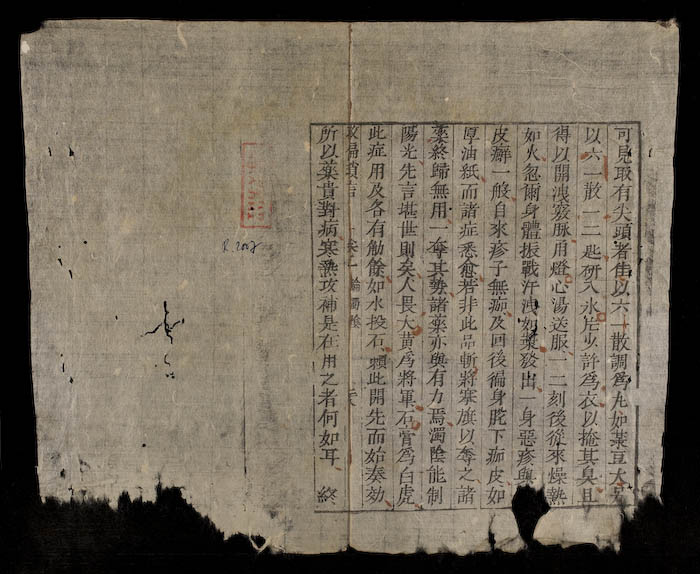 可見取有尖頭者佳以六一散調爲丸如菉豆大另
以六一散一二匙研入氷片少許爲衣以掩其臭且
得以開洩竅脉用燈心湯送服一二刻後後來燥熱
如火忽爾身體振戰汗洩如漿發出一身惡疹與
皮癬一般自來疹子無痂及回後徧身脫下痂皮如
厚油紙而諸症悉愈若非此品斬將搴旗以奪之諸
藥終歸無用一奪其勢諸藥亦與有力焉濁陰能制
陽光先言堪世則矣人畏大黄爲將軍石膏爲白虎
此症用及各有勣餘如水投石賴此開先而始奏效
救偏瑣言 卷一 論濁陰
所以藥貴對病寒熱攻補是在用之者何如耳 終
R.2007